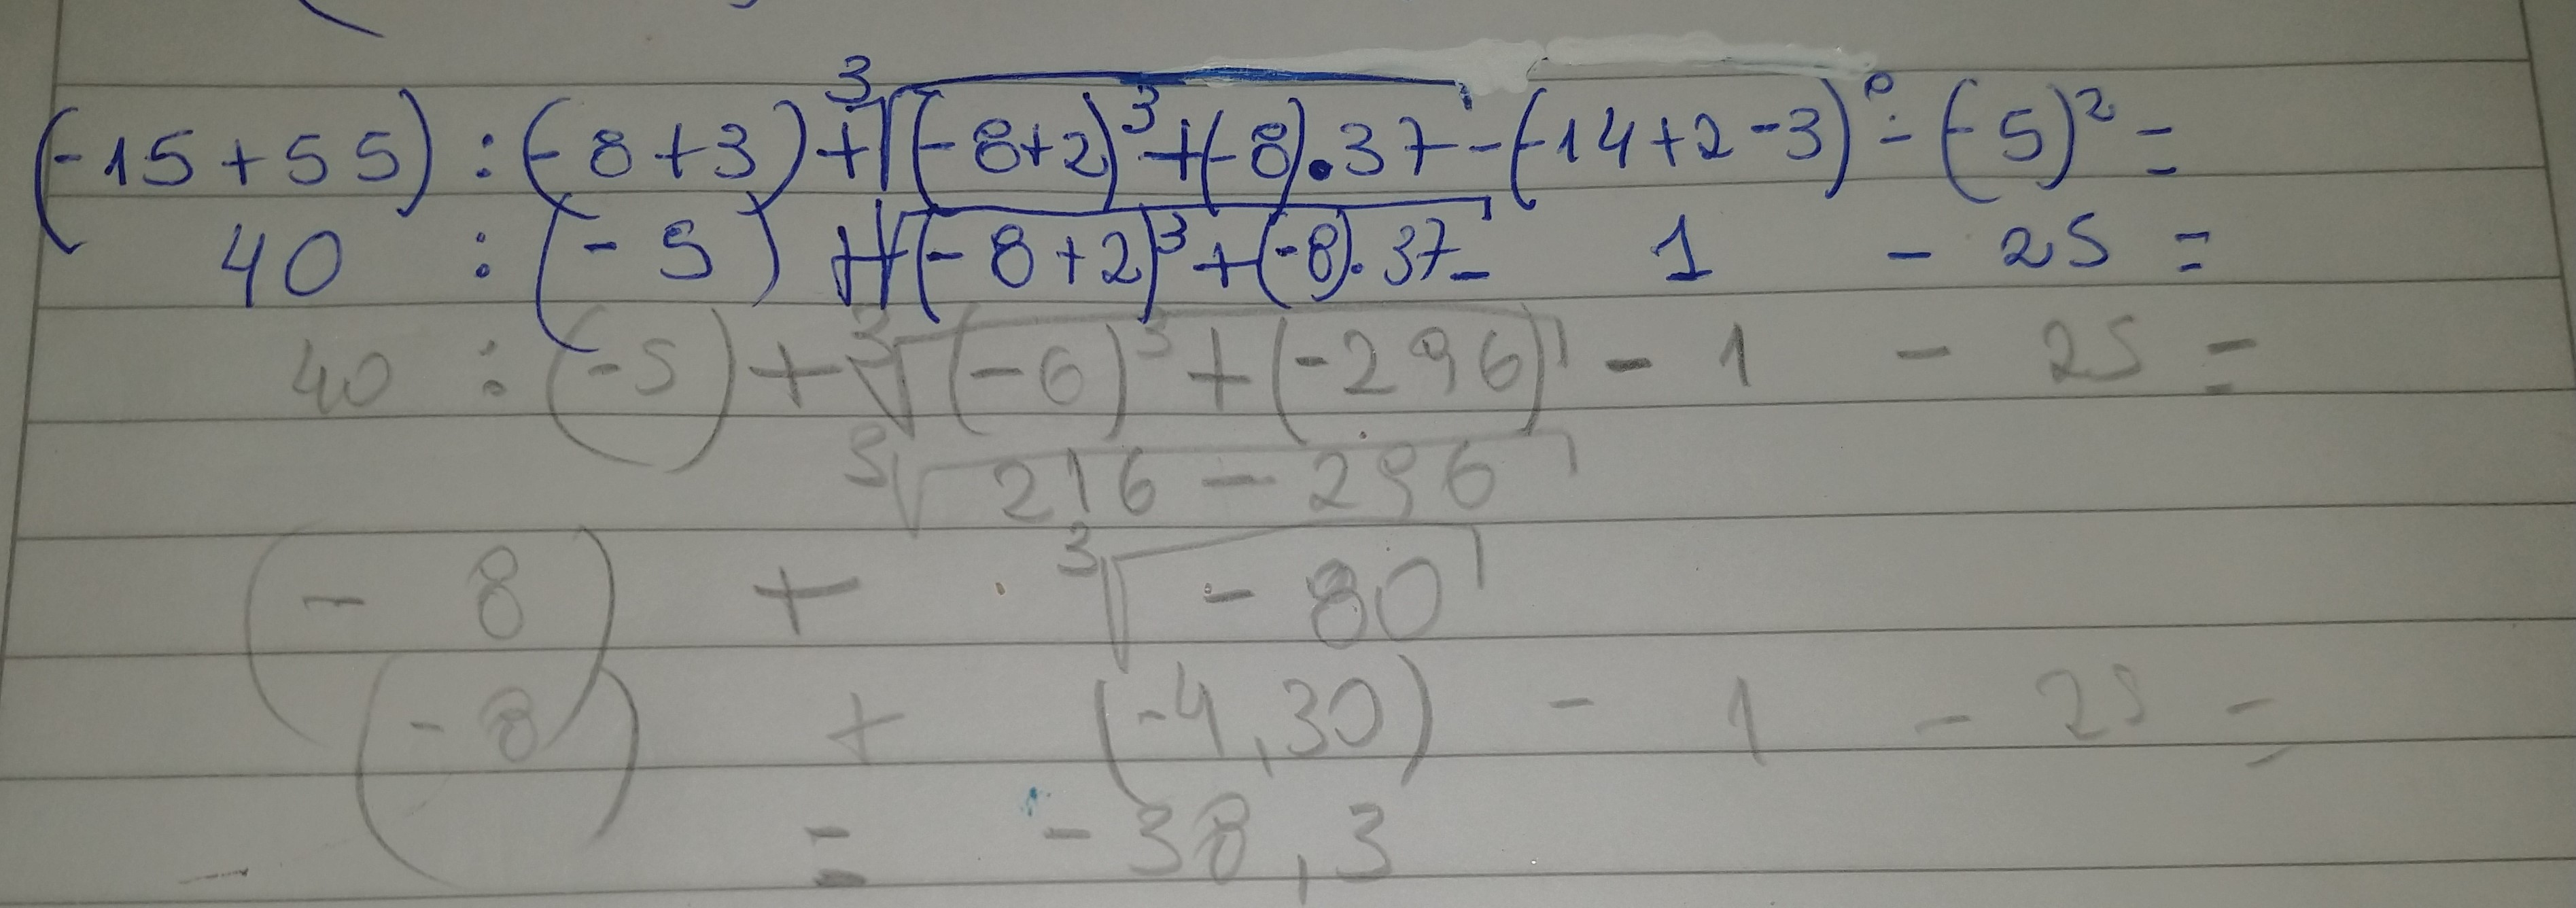 (-15+55):(-8+3)+∛(-8+2)³+(-8).37-(-14+2-3)⁰-(-5)²=
40 : (-5) +√(-8+2)³+(-8).37- 1 - 25 =
40 : (-5)+∛(-6)³+(-296) - 1 - 25 =
∛216-296
(- 8) + ∛-80
(-8) + (-4,30) - 1 - 25 =
= -38,3